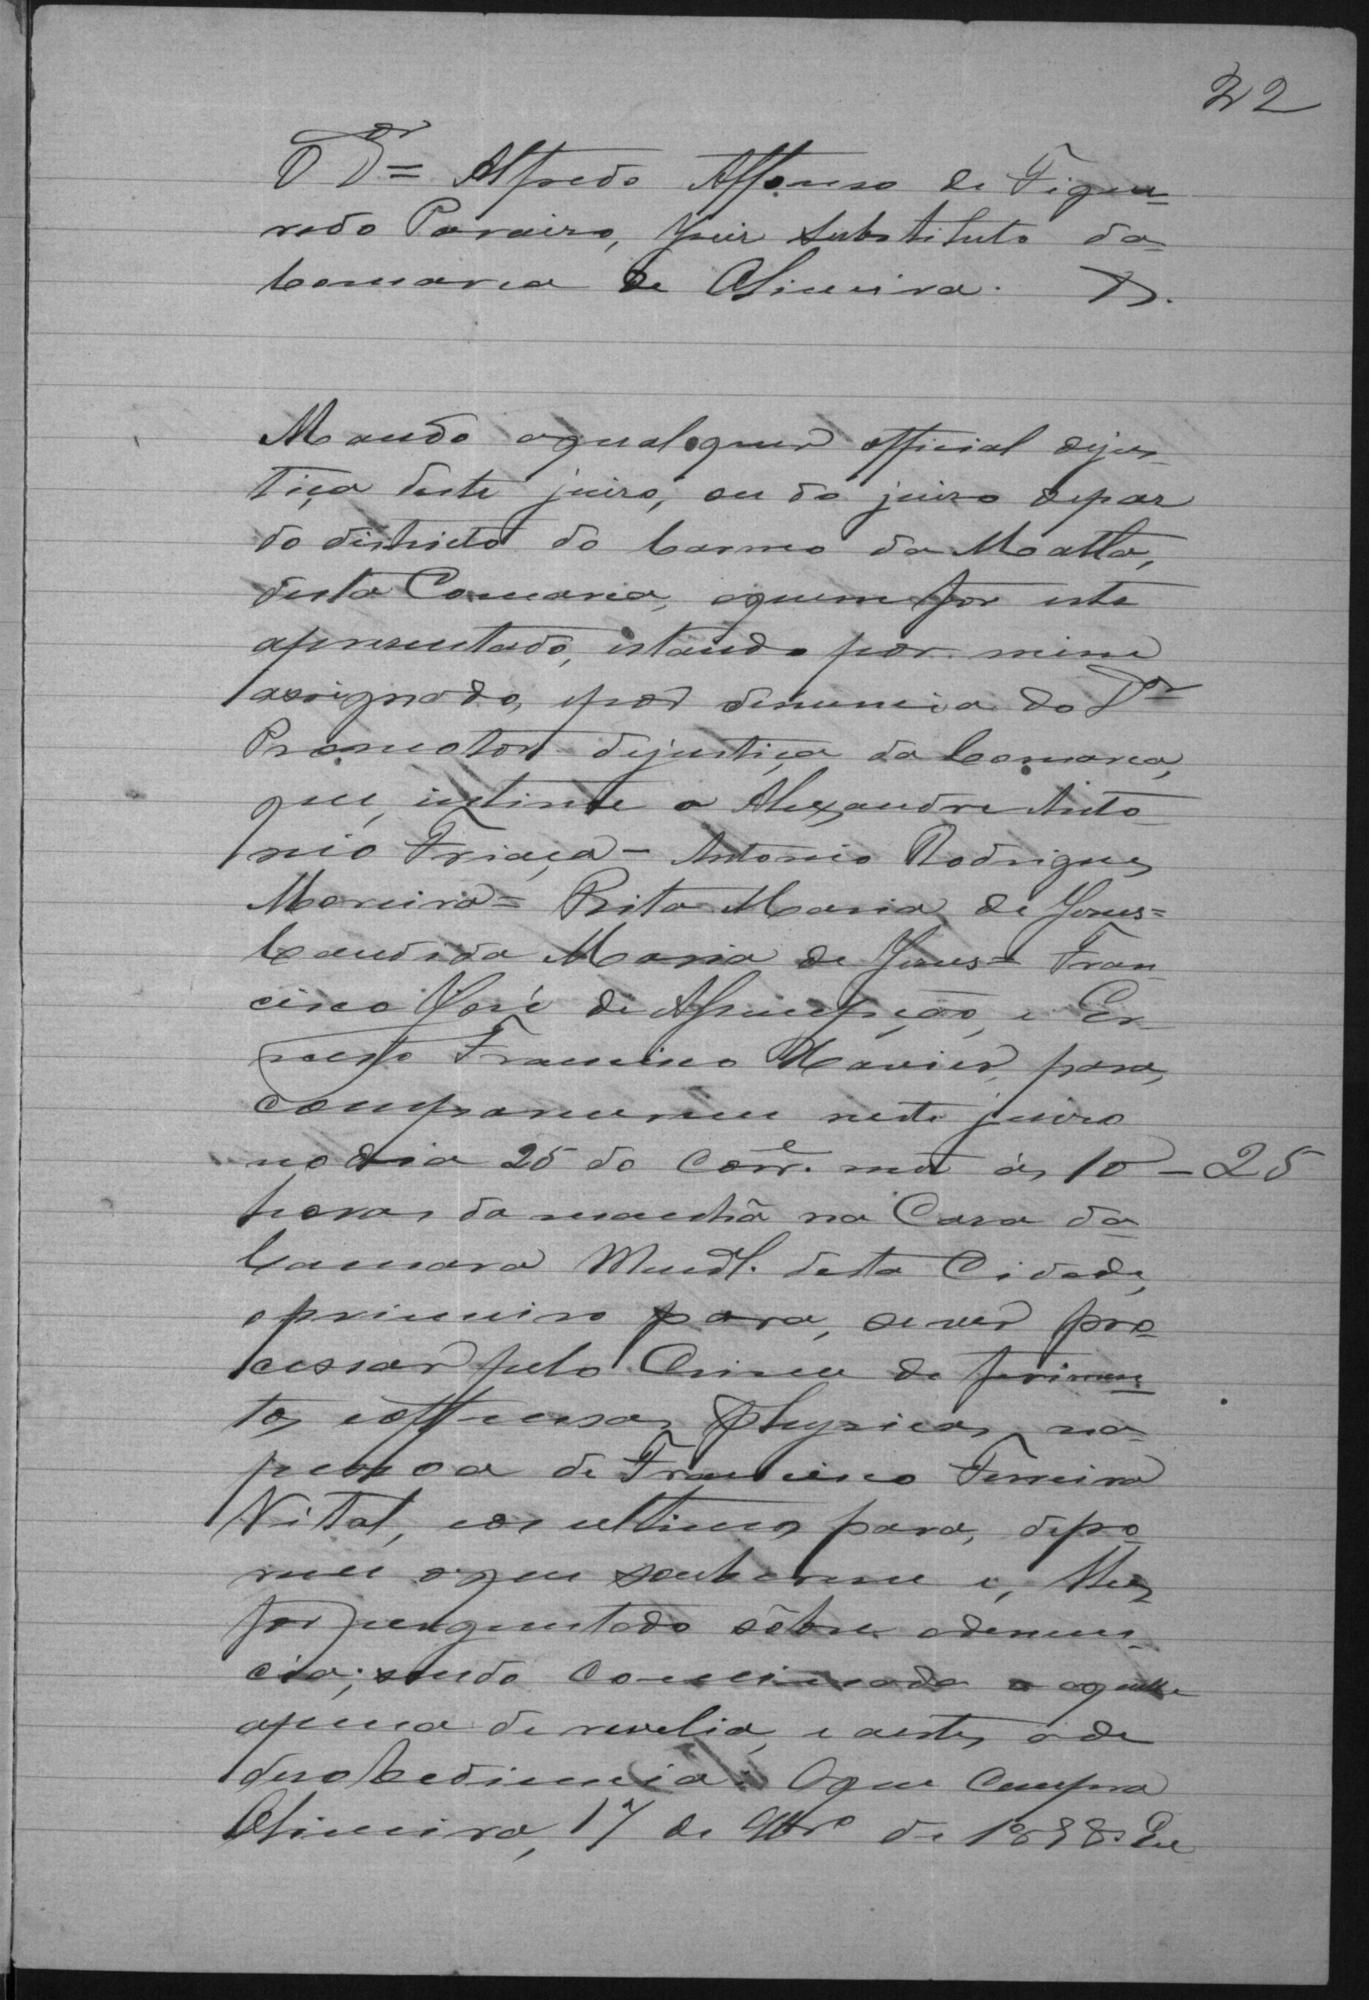 22
O Dor = Alfredo Affonso de Figue-
redo Paraizo, Juiz Substituto da
Comarca de Oliveira. &.
Mando aqualquer official dejus-
tiça deste juizo, ou do juizo depaz
do districto do Carmo da Matta,
desta Comarca, aquem for este
apresentado, estando por mim
assignado, epor denuncia do Dor
Promotor dejustiça da Comarca,
que, intime a Alexandre Anto
nio Friaça - Antonio Rodrigues
Moreira = Rita Maria de Jesus =
Candida Maria de Jesus = Fran
cisco José de Assumpção, e Er
nesto Francisco Xavier, para,
comparecerem neste juizo
no dia 25 do Corre. mez ás 10 - 25
horas da manhã na Casa da
Camara Munal. desta Cidade,
oprimeiro para, sever pro-
cessar pelo Crime de ferimen-
tos eoffensas physicas na
pessoa de Francisco Ferreira
Vital, eos ultimos para, depo-
rem oque souberem e, lhes
for perguntado sôbre adenun-
cia; sendo Comminada a aquelle
apena de revelia, e aestes a de
desobediencia. Oque Cumpra
Oliveira, 17 de 9bro de 1898. Eu